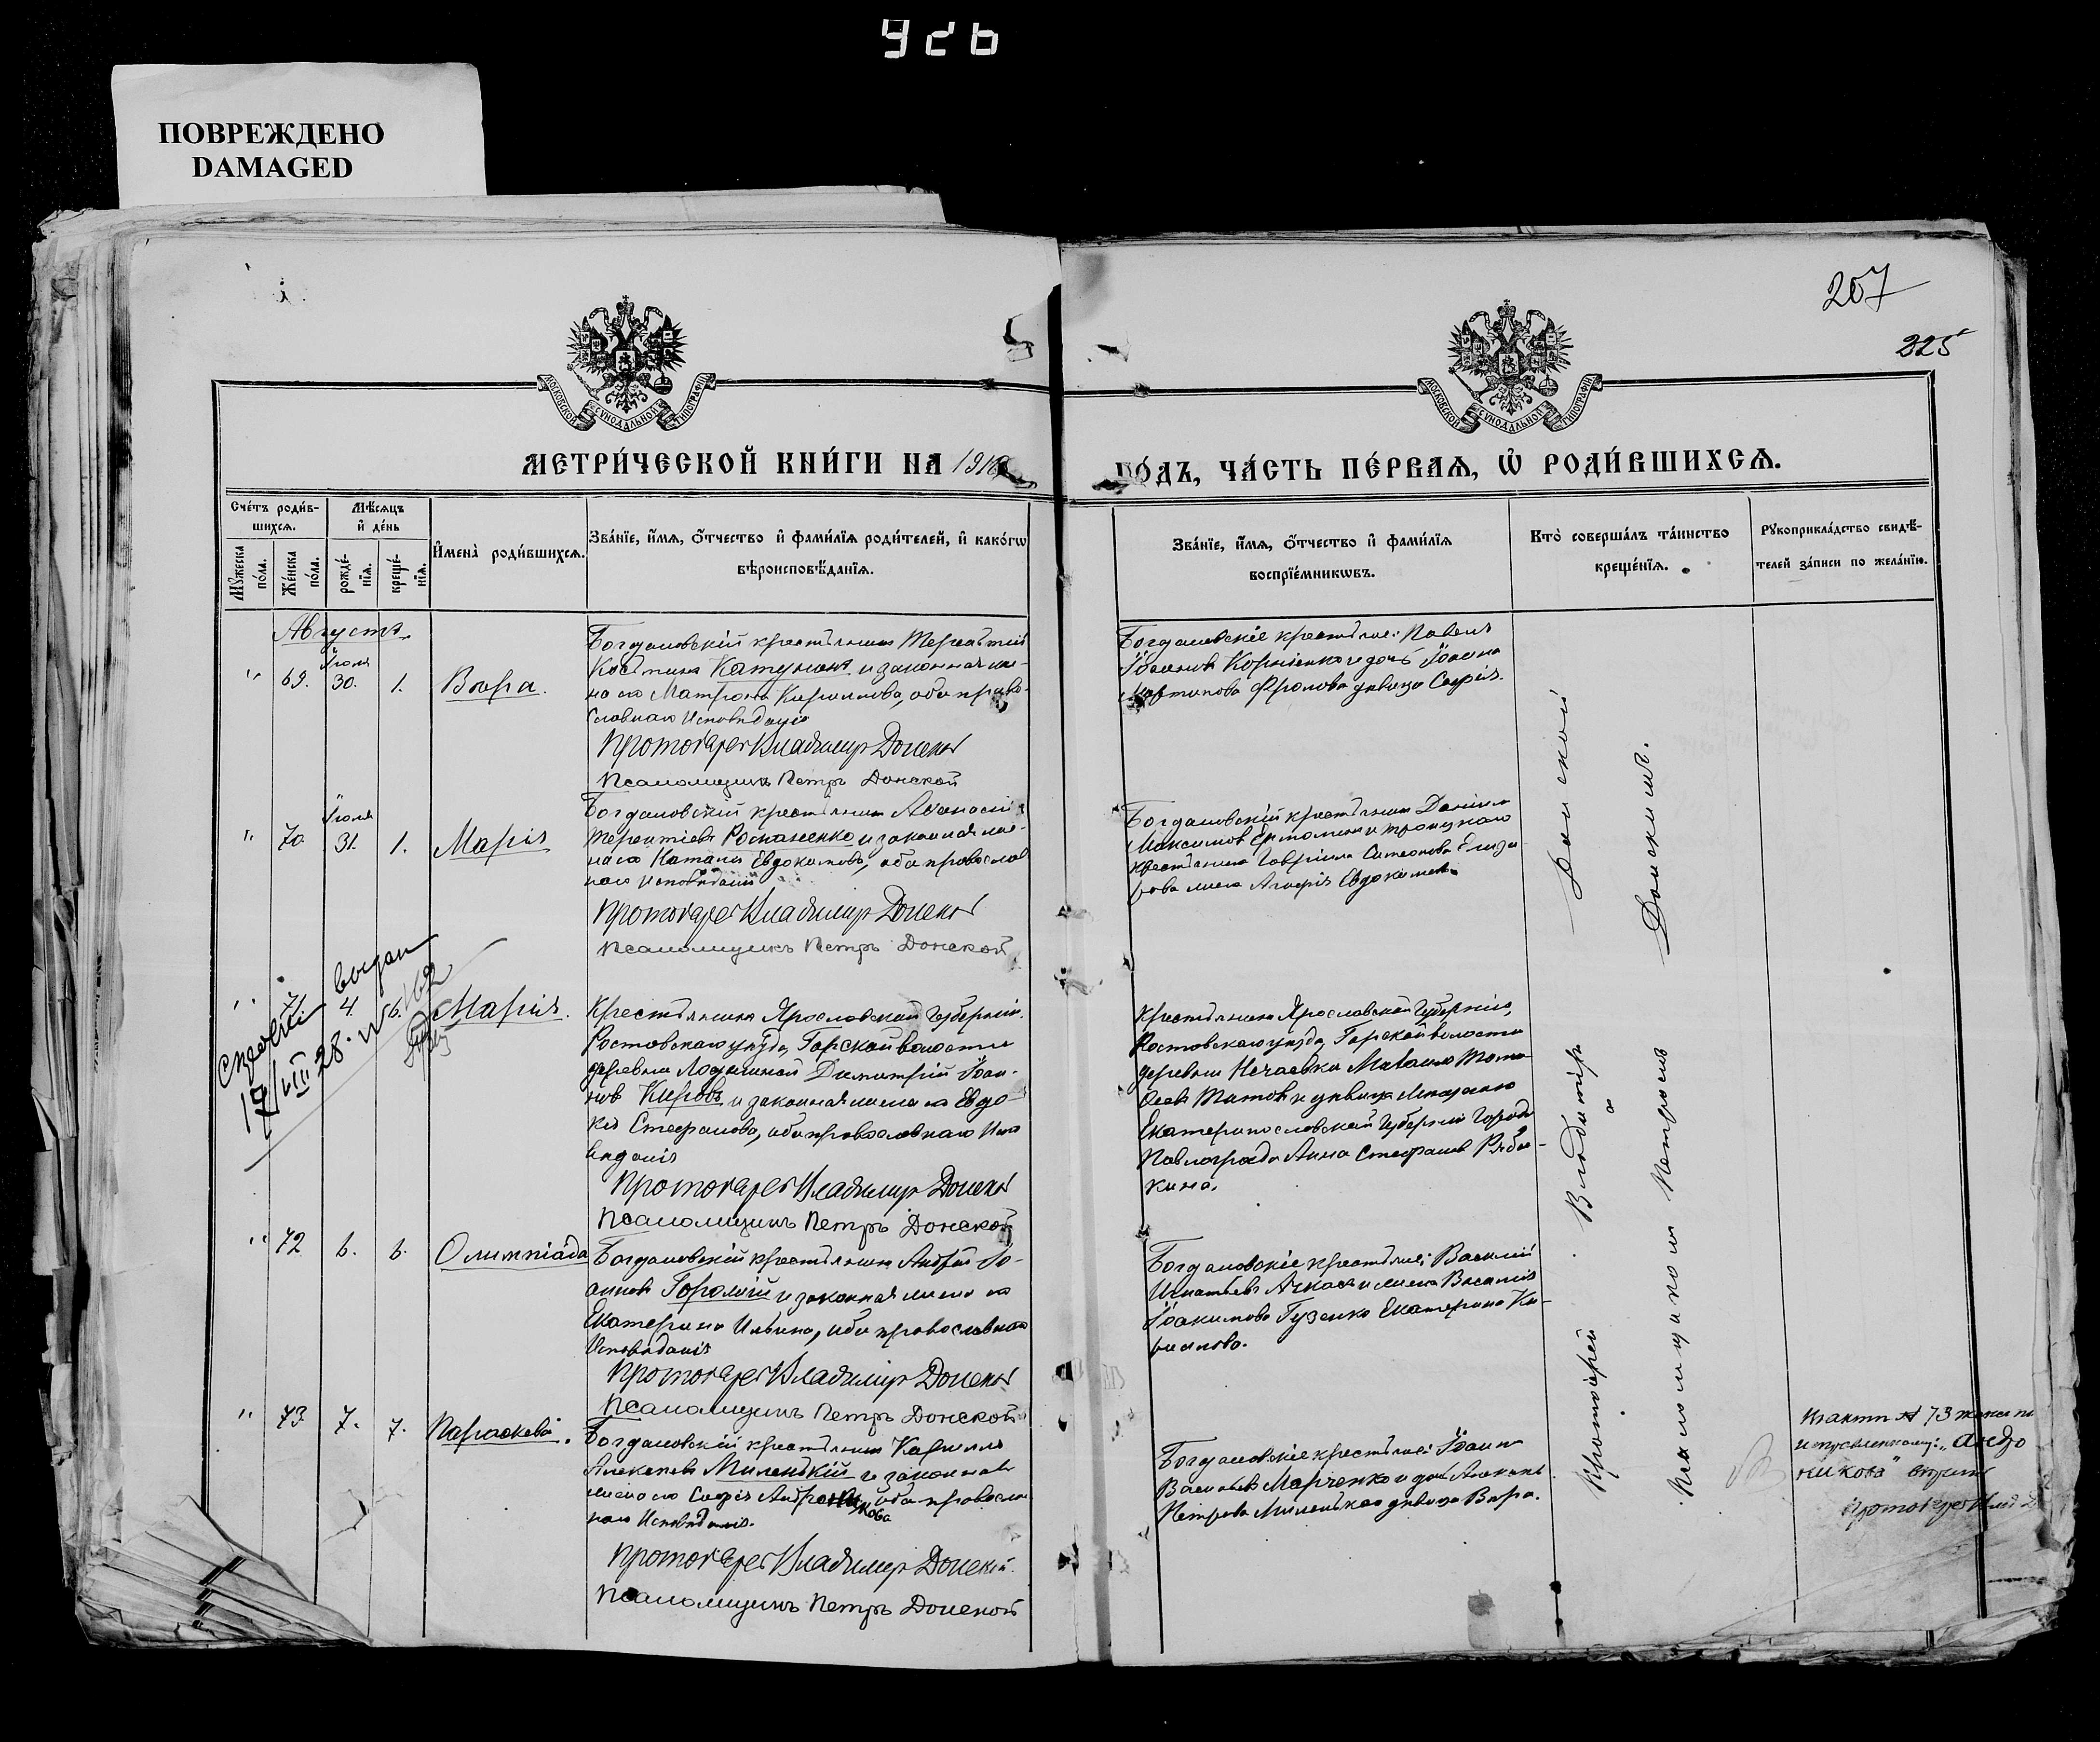 ПОВРЕЖДЕНО
DAMAGED
207
225
МОСКОВСКОЙ СУНОДАЛЬНОЙ ТИПОГРАФІИ
МОСКОВСКОЙ СУНОДАЛЬНОЙ ТИПОГРАФІИ
МЕТРИ́ЧЕСКОЙ КНИ́ГИ НА 191
ГО́ДЪ, ЧА́СТЬ ПЕ́РВАѦ, Ѡ҆ РОДИ́ВШИХСѦ.
Сче́тъ роди́в-
шихсѧ.
Мѣ́сѧцъ
и҆ де́нь
Мꙋ́жеска
по́ла.
Же́нска
по́ла.
рожде́-
нїѧ.
креще́-
нїѧ.
И҆мена̀ роди́вшихсѧ.
Зва́нїе, и҆́мѧ, ѻ҆́тчество и҆ фами́лїѧ роди́телей, и҆ како́гѡ
вѣроисповѣ́данїѧ.
Зва́нїе, и҆́мѧ, ѻ҆́тчество и҆ фами́лїѧ
воспрїе́мникѡвъ.
Кто̀ соверша́лъ та́инство
креще́нїѧ.
Рꙋкоприкла́дство свидѣ́-
телей за́писи по жела́нїю.
Августъ.
" 69. Іюля 30. 1. Вѣра.
Богдановскій крестьянинъ Терентій
Костинъ и законная же-
на его Матрона Кириллова, оба право-
славнаго Исповѣданія
Протоіерей Владимір Донской
Псаломщикъ Петръ Донской
Богдановскіе крестьяне: Павелъ
Іоанновъ Корніенко и дочь Іоанна
Мартинова Фролова дѣвица Софія.
" 70 Іюля 31. 1. Марія
Богдановскій крестьянинъ Аѳанасій
Терентіевъ Романенко и законная же-
на его Наталія Евдокимова, оба православ
наго Исповѣданія
Протоіерей Владимір Донской
Псаломщикъ Петръ Донской
Богдановскій крестьянинъ Даніилъ
Максимов и троицкаго
крестьянина Гавріила Симеонова Елиза-
рова жена Агафія Евдокимова.
выдан
" 71 4. 6. Марія.
17/VIII 28.
Крестьянинъ Ярославской Губерніи,
Ростовскаго уѣзда, Горской волости
деревни Димитрій Іоан-
новъ Кировъ и законная жена его Евдо-
кія Стефанова, оба православнаго Испо
вѣданія
Протоіерей Владимір Донской
Псаломщикъ Петръ Донской
Крестьянинъ Ярославской Губерніи,
Ростовскаго уѣзда, Горской волости
деревни Нечаевки Михаилъ Тимо-
ѳеевъ Титовъ и дѣвица мѣщанка
Екатеринославской Губерніи Города
Павлограда Анна Стефанова Рябы-
кина.
" 72 6. 6. Олимпіада
Богдановскій крестьянинъ Андрей Іо-
анновъ Горолій и законная жена его
Екатерина Ильина, оба православнаго
Исповѣданія
Протоіерей Владимір Донской
Псаломщикъ Петръ Донской
Богдановскіе крестьяне: Василій
Игнатьевъ и жена Василія
Іоакимова Гузенко Екатерина Ки-
ріанова.
" 73. 7. 7. Параскева.
Богдановскій крестьянинъ Кириллъ
Алексѣевъ Миленькій и законная
жена его Софія Андроникова, оба правосла
наго Исповѣданія.
Протоіерей Владимір Донской
Псаломщикъ Петръ Донской
Богдановскіе крестьяне: Іоаннъ
Васильевъ Марченко и дочь
Петрова Миленькаго дѣвица Вѣра.
Протоіерей Владиміръ Донской
Псаломщикомъ Петромъ Донскимъ.
№ 73
исправленному: "Андро
никова" вѣрить
Протоіерей Влад